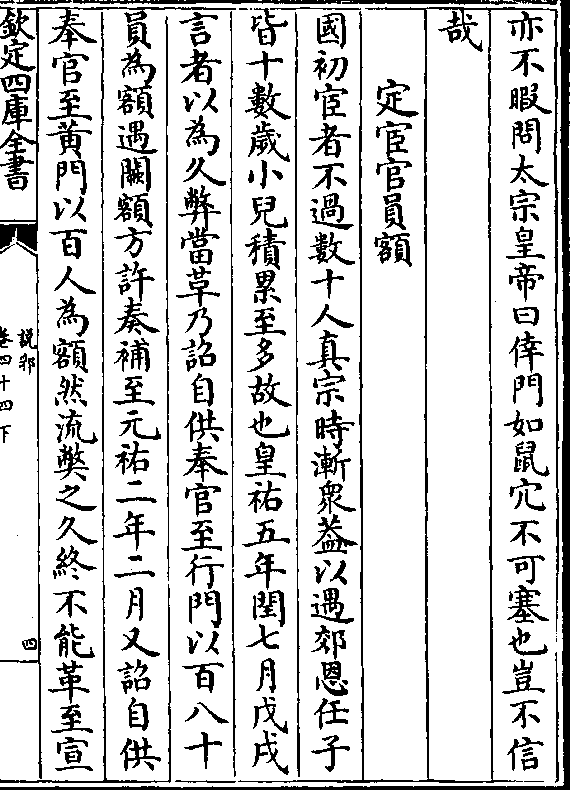 亦不暇問太宗皇帝曰倖門如鼠穴不可塞也豈不信
哉
定宦官員額
國初宦者不過數十人真宗時漸衆葢以遇郊恩任子
皆十數歲小兒積累至多故也皇祐五年閏七月戊戌
言者以為久弊當革乃詔自供奉官至行門以百八十
員為額遇闕額方許奏補至元祐二年二月又詔自供
奉官至黄門以百人為額然流弊之久終不能革至宣
欽定四庫全書
說郛
卷四十四下
四